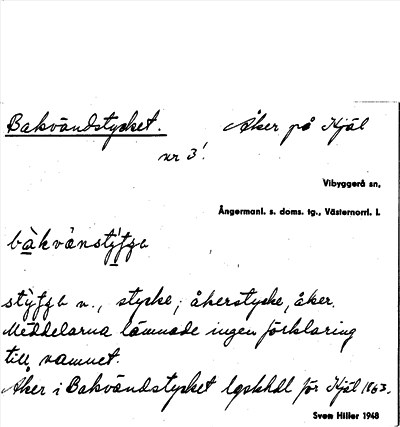 Bakvändstycket. Åker på Kjäl
nr 3!
Vibyggerå sn,
Ångermanl. s. doms. tg., Västernorrl. l.
bàkvä̀nstý̨tʃa
stỳ̨tʃa n., stycke; åkerstycke, åker.
Meddelarna lämnade ingen förklaring
till namnet.
Åker i Bakvändstycket lgskhdl för Kjäl 1863.
Sven Hiller 1948